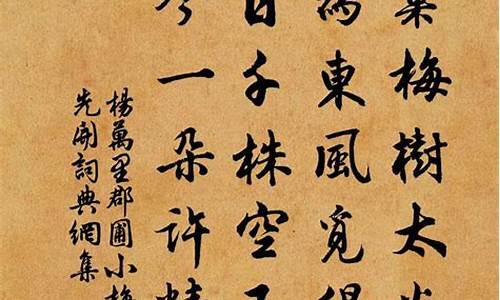 梅樹太
東風覓
日千株空
今一朵許
楊萬里郡圃小梅
先開詞典網集